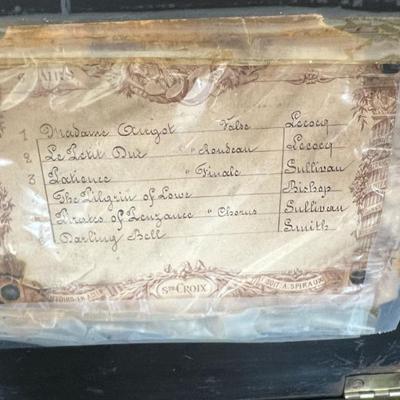 AIRS
1 Madame Angot Valse Lecocq
2 Le Petit Duc " Rondeau Lecocq
3 Patience " Finale Sullivan
The Pilgrin of Love Bishop
Pirates of Penzance " Chorus Sullivan
6 Darling Bell Smith
STE CROIX